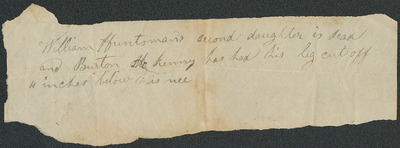 William Huntsman's second daughter is dead
and Burton Mc kenny has had his leg cut off
4 inches below his nee